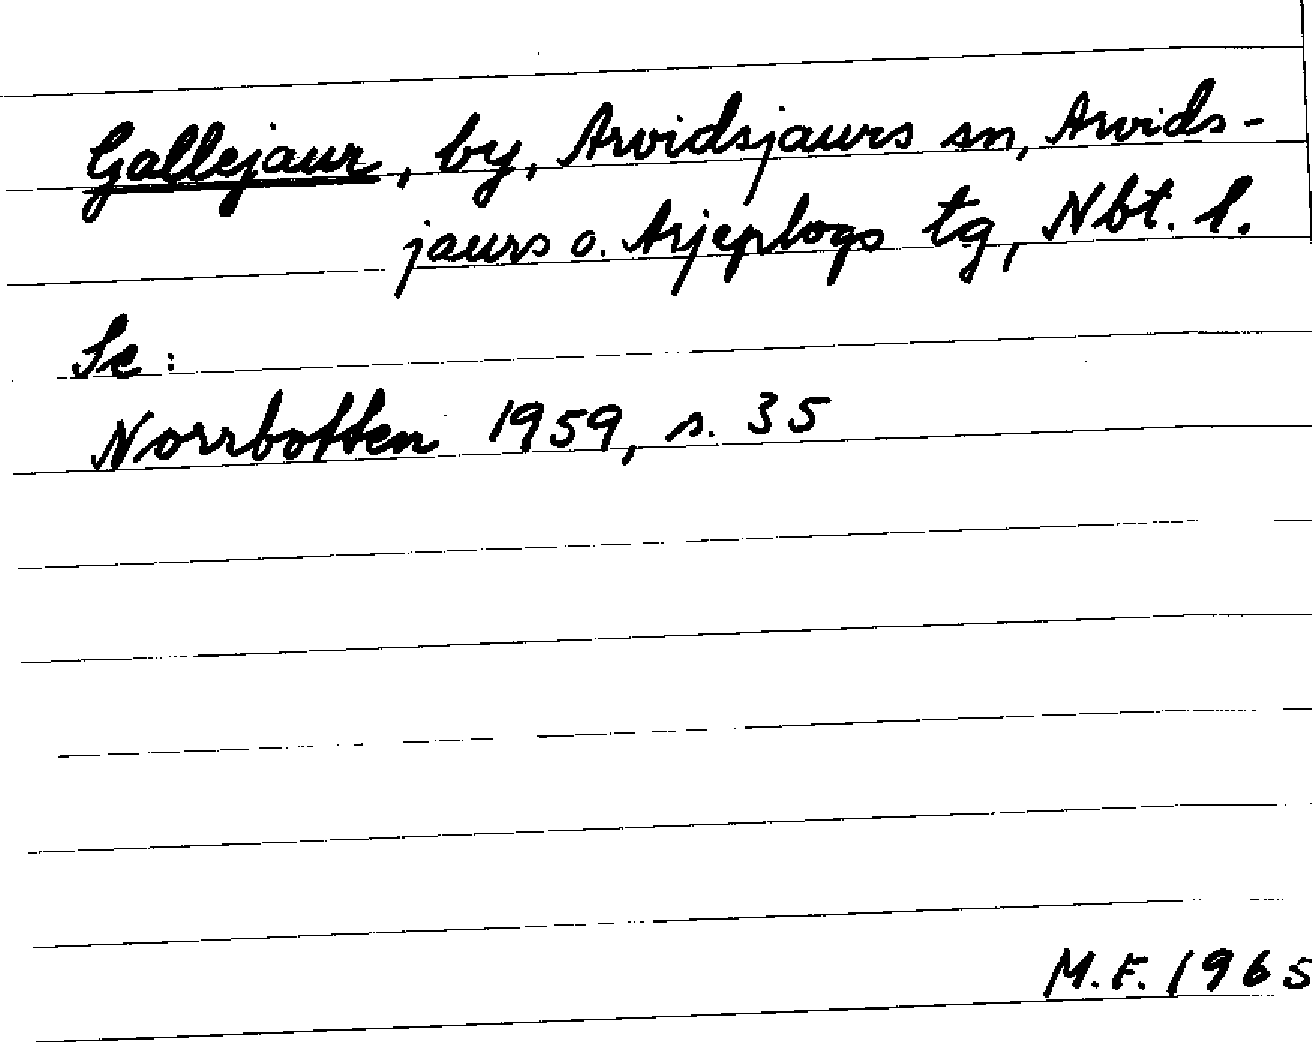 Gallejaur, by, Arvidsjaurs sn, Arvids-
jaurs o. Arjeplogs tg, Nbt. l.
Se:
Norrbotten 1959, s. 35
M.F. 1965